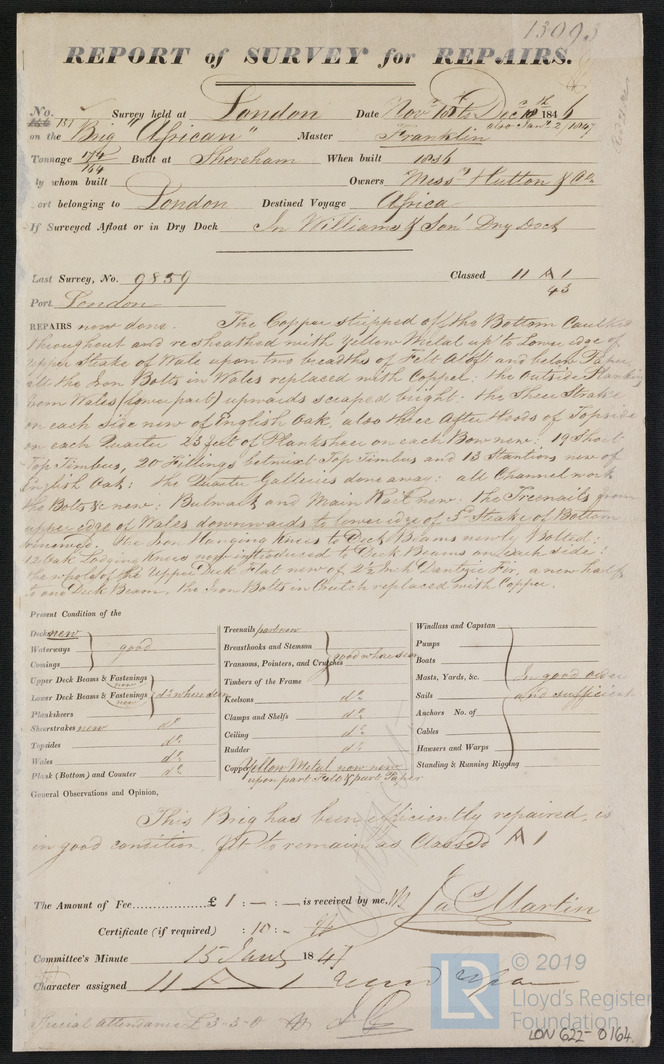 13093
REPORT of SURVEY for REPAIRS.
No. 151 Survey held at London Date Novr 18th Decr 10th 1846
also Jany 2/1847
on the Brig "African" Master Franklin
Tonnage 174/164 Built at Shoreham When built 1836
by whom built Owners Messrs Hutton & Co.
Port belonging to London Destined Voyage Africa
If Surveyed Afloat or in Dry Dock In Williams & Sons' Dry Dock
Last Survey, No. 9859 Classed 11 A 1
43
Port London
REPAIRS now done. The Copper stripped off the Bottom Caulked
throughout and resheathed with Yellow Metal up to Lower edge of
upper Strake of Wale upon two breadths of Felt Aloft and below Paper
all the Iron Bolts in Wales replaced with Copper: the outside Planking
from Wales (lower part) upwards scraped bright. the Sheer Strake
on each side new of English Oak, also three After Hoods of Topside
on each Quarter 23 feet of Planksheer on each Bow new: 19 Short
Top Timbers, 20 Fillings betwixt Top Timbers and 13 Stantions new of
English Oak: the Quarter Galleries done away: all Channel work
the Bolts &c new: Bulwark and Main Rail new. the Treenails from
upper edge of Wales downwards to lower edge of 5th Strake of Bottom
renewed. the Iron Hanging Knees to Deck Beams newly Bolted:
12 Oak Lodging Knees now introduced to Deck Beams on each side:
the whole of the Upper Deck Flat new of 2½ Inch Dantzic Fir, a new half
to one Deck Beam, the Iron Bolts in Crutch replaced with Copper.
Present Condition of the
Decks new
Waterways good
Comings
Upper Deck Beams & Fastenings new
Lower Deck Beams & Fastenings new do where seen
Planksheers
Sheerstrakes new do
Topsides do
Wales do
Plank (Bottom) and Counter do
Treenails part new
Breasthooks and Stemson
Transoms, Pointers, and Crutches good where seen
Timbers of the Frame
Keelsons do
Clamps and Shelfs do
Ceiling do
Rudder do
Copper Yellow Metal now new
upon part Felt & part Paper
Windlass and Capstan
Pumps
Boats
Masts, Yards, &c. In good order
Sails and sufficient
Anchors No. of
Cables
Hawsers and Warps
Standing & Running Rigging
General Observations and Opinion,
This Brig has been efficiently repaired, is
in good condition, fit to remain as Classed A 1
The Amount of Fee £ 1 : — : — is received by me,
Jas Martin
Certificate (if required) : 10 : -
Committee's Minute 15 Jany 1847
Character assigned 11 A 1
Special attendance £ 3-3-0
© 2019
LR
Lloyd's Register
Foundation
LON 622-0164